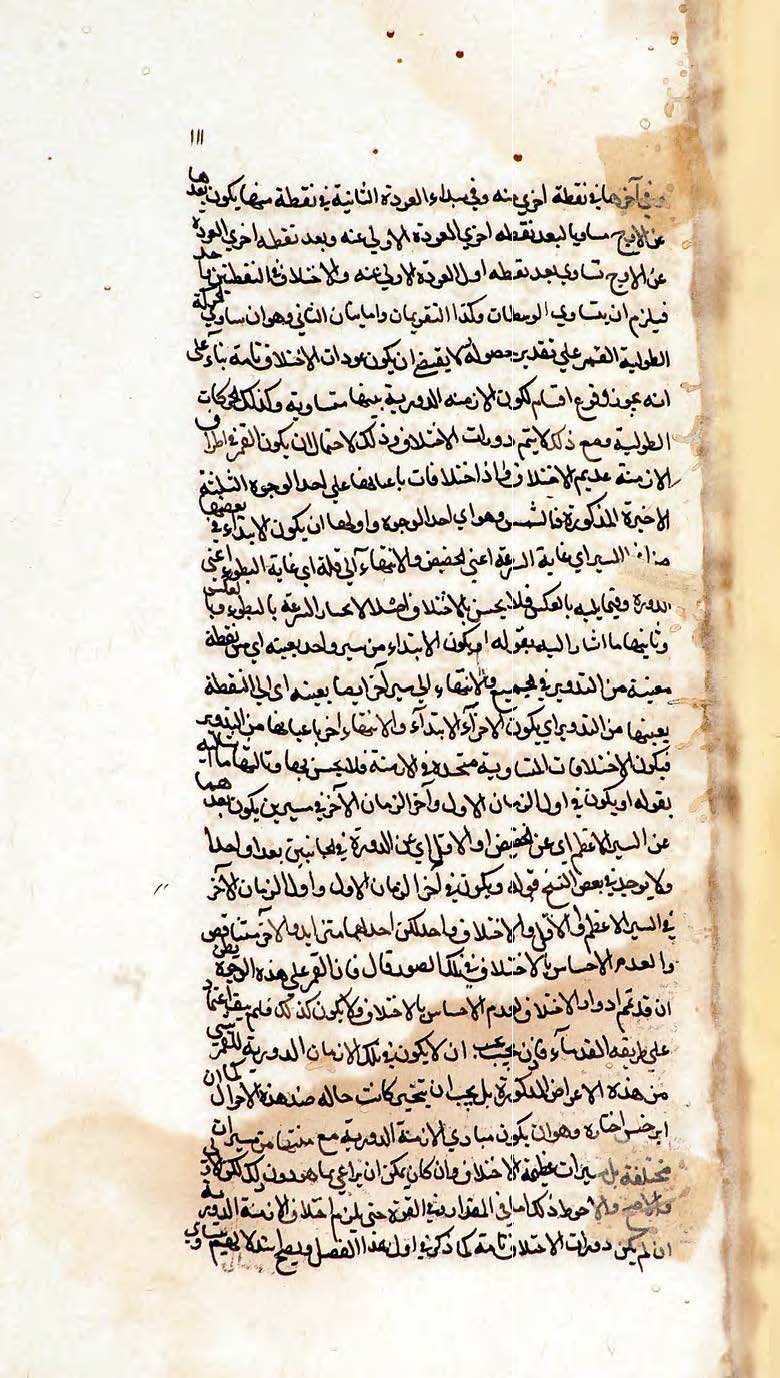 ١١١
وفي آخرها في نقطة اخري منه وفي مبداء العودة الثانية في نقطة منها يكون بعدها
عن الاوج مساويا لبعد نقطه اخري العودة الاولي عنه وبعد نقطه اخري العودة
عن الاوج تساوي بعد نقطه اول العودة الاولي عنه والاختلاف في النقطتين
فيلزم ان يتساوي الوسطات وكذا التقويمان واما بيان الثاني وهو ان تساوي الحركة
الطولية القمر علي تقدير حصوله لا يقتضي ان يكون عودات الاختلاف تامة بناء علي
انه يجوز وقوع اقسام لكون الازمنه الدورية بينها متساوية وكذلك الحركات
الطولية ومع ذلك لا يتم دورات الاختلاف وذلك لاحتمال ان يكون القمر في اطراف
الازمنة عديم الاختلاف او ذا اختلافات باعيانها علي احد الوجوه الثلثة
الاخيرة المذكورة في الشمس وهو اي احد الوجوه واولها ان يكون الابتداء في بعضها
من السير اي غاية السرعة اعني الحضيض والانتهاء الي قلة اي غاية البطوء اعني
الدورة وفيما يليه بالعكس فلا يحس بالاختلاف اصلا لانجبار السرعة بالبطوء وبالعكس
وثانيها ما اشار اليه بقوله او يكون الابتداء من سير واحد بعينه اي من نقطة
معينة من التدوير في الجميع والانتهاء الي سير آخر ايضا بعينه اي الي النقطة
بعينها من التدوير اي يكون الاجزاء الابتداء والانتهاء اجزا باعيانها من التدوير
فيكون الاختلافات المتساوية متحدة في الازمنة فلا يحس بها وثالثها ما اشار اليه
بقوله او يكون في اول الزمان الاول وآخر الزمان الآخر في سيرين يكون بعدهما
عن السير الاعظم اي عن الحضيض او الاقل اي عن الدورة في الجانبين بعدا واحدا
ولا يوجد في بعض النسخ قوله ويكون في آخر الزمان الاول واول الزمان الآخر
في السير الاعظم او الاقل والاختلاف واحد لكن احدهما متزايد والآخر متناقص
والعدم الاحساس بالاختلاف في تلك الصور قال فان القمر علي هذه الوجوه يظن
ان قد تمم ادوار الاختلاف لعدم الاحساس بالاختلاف ولا يكون كذلك فلم يبق اعتماد
علي طريقه القدماء فاذن يجب ان لا يكون في تلك الازمان الدورية للقمر شي
من هذه الاعراض المذكورة بل يجب ان يتخير كانت حاله ضد هذه الاحوال كما ان
ابرخس اختاره وهو ان يكون مبادي الازمنة الدورية مع منتهاها من سيرات
مختلفة بل سيرات عظيمة الاختلاف وان كان يمكن ان يراعي بما هو دون ذلك لكن الاولي
والاصح والاحوط ذلك اما في المقدار وفي القوة حتي يلزم اختلاف الازمنة الدورية
ان لم يكن دورات الاختلاف تامة كما ذكر في اول هذا الفصل ويصح مثلا تساوي